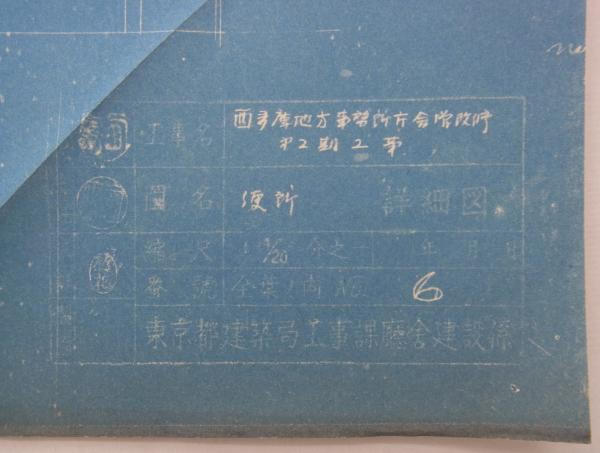 工事名 西多摩地方事務所庁舎増改修
第2期工事
圖名 便所 詳細図
縮尺 1/20 分之一 年月日
番號 全葉ノ内 NO. 6
東京都建築局工事課廳舎建設係